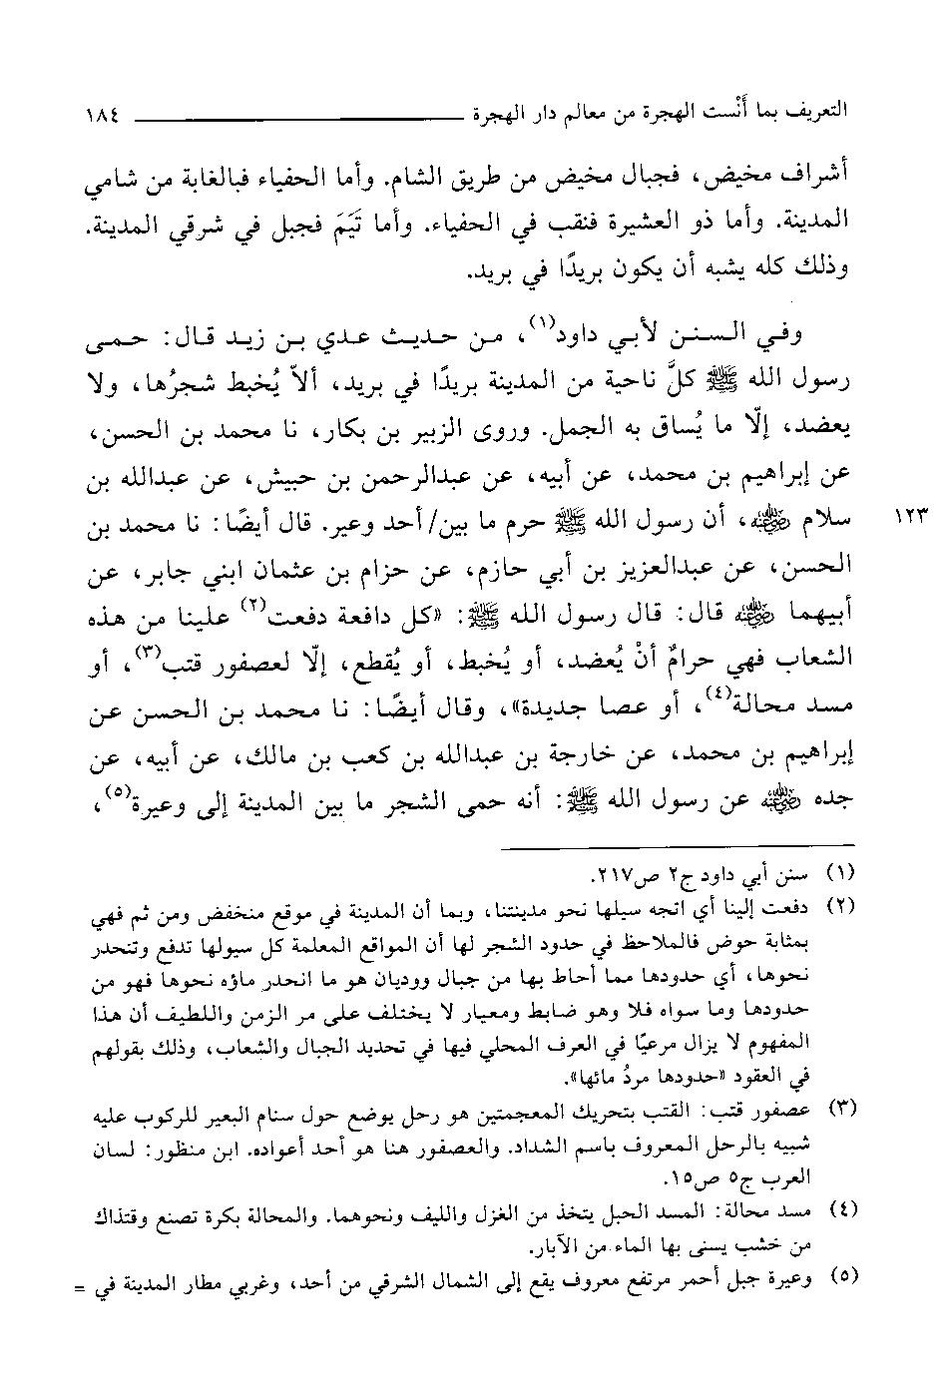 التعريف بما أَنْست الهجرة من معالم دار الهجرة ١٨٤
أشراف مخيض، فجبال مخيض من طريق الشام. وأما الحفياء فبالغابة من شامي
المدينة. وأما ذو العشيرة فنقب في الحفياء. وأما تَيَمَ فجبل في شرقي المدينة.
وذلك كله يشبه أن يكون بريدًا في بريد.
وفي السنن لأبي داود(١)، من حديث عدي بن زيد قال: حمى
رسول الله ﷺ كلَّ ناحية من المدينة بريدًا في بريد، ألاّ يُخبط شجرُها، ولا
يعضد، إلّا ما يُساق به الجمل. وروى الزبير بن بكار، نا محمد بن الحسن،
عن إبراهيم بن محمد، عن أبيه، عن عبدالرحمن بن حبيش، عن عبدالله بن
سلام رضي الله عنه، أن رسول الله ﷺ حرم ما بين/ أحد وعير. قال أيضًا: نا محمد بن
١٢٣
الحسن، عن عبدالعزيز بن أبي حازم، عن حزام بن عثمان ابني جابر، عن
أبيهما رضي الله عنه قال: قال رسول الله ﷺ: «كل دافعة دفعت(٢) علينا من هذه
الشعاب فهي حرامٌ أنْ يُعضد، أو يُخبط، أو يُقطع، إلّا لعصفور قتب(٣)، أو
مسد محالة(٤)، أو عصا جديدة»، وقال أيضًا: نا محمد بن الحسن عن
إبراهيم بن محمد، عن خارجة بن عبدالله بن كعب بن مالك، عن أبيه، عن
جده رضي الله عنه عن رسول الله ﷺ: أنه حمى الشجر ما بين المدينة إلى وعيرة(٥)،
(١) سنن أبي داود ج٢ ص٢١٧.
(٢) دفعت إلينا أي اتجه سيلها نحو مدينتنا، وبما أن المدينة في موقع منخفض ومن ثم فهي
بمثابة حوض فالملاحظ في حدود الشجر لها أن المواقع المعلمة كل سيولها تدفع وتنحدر
نحوها، أي حدودها مما أحاط بها من جبال ووديان هو ما انحدر ماؤه نحوها فهو من
حدودها وما سواه فلا وهو ضابط ومعيار لا يختلف على مر الزمن واللطيف أن هذا
المفهوم لا يزال مرعيًا في العرف المحلي فيها في تحديد الجبال والشعاب، وذلك بقولهم
في العقود «حدودها مردُ مائها».
(٣) عصفور قتب: القتب بتحريك المعجمتين هو رحل يوضع حول سنام البعير للركوب عليه
شبيه بالرحل المعروف باسم الشداد. والعصفور هنا هو أحد أعواده. ابن منظور: لسان
العرب ج٥ ص١٥.
(٤) مسد محالة: المسد الحبل يتخذ من الغزل والليف ونحوهما. والمحالة بكرة تصنع وقتذاك
من خشب يسنى بها الماء من الآبار.
(٥) وعيرة جبل أحمر مرتفع معروف يقع إلى الشمال الشرقي من أحد، وغربي مطار المدينة في =